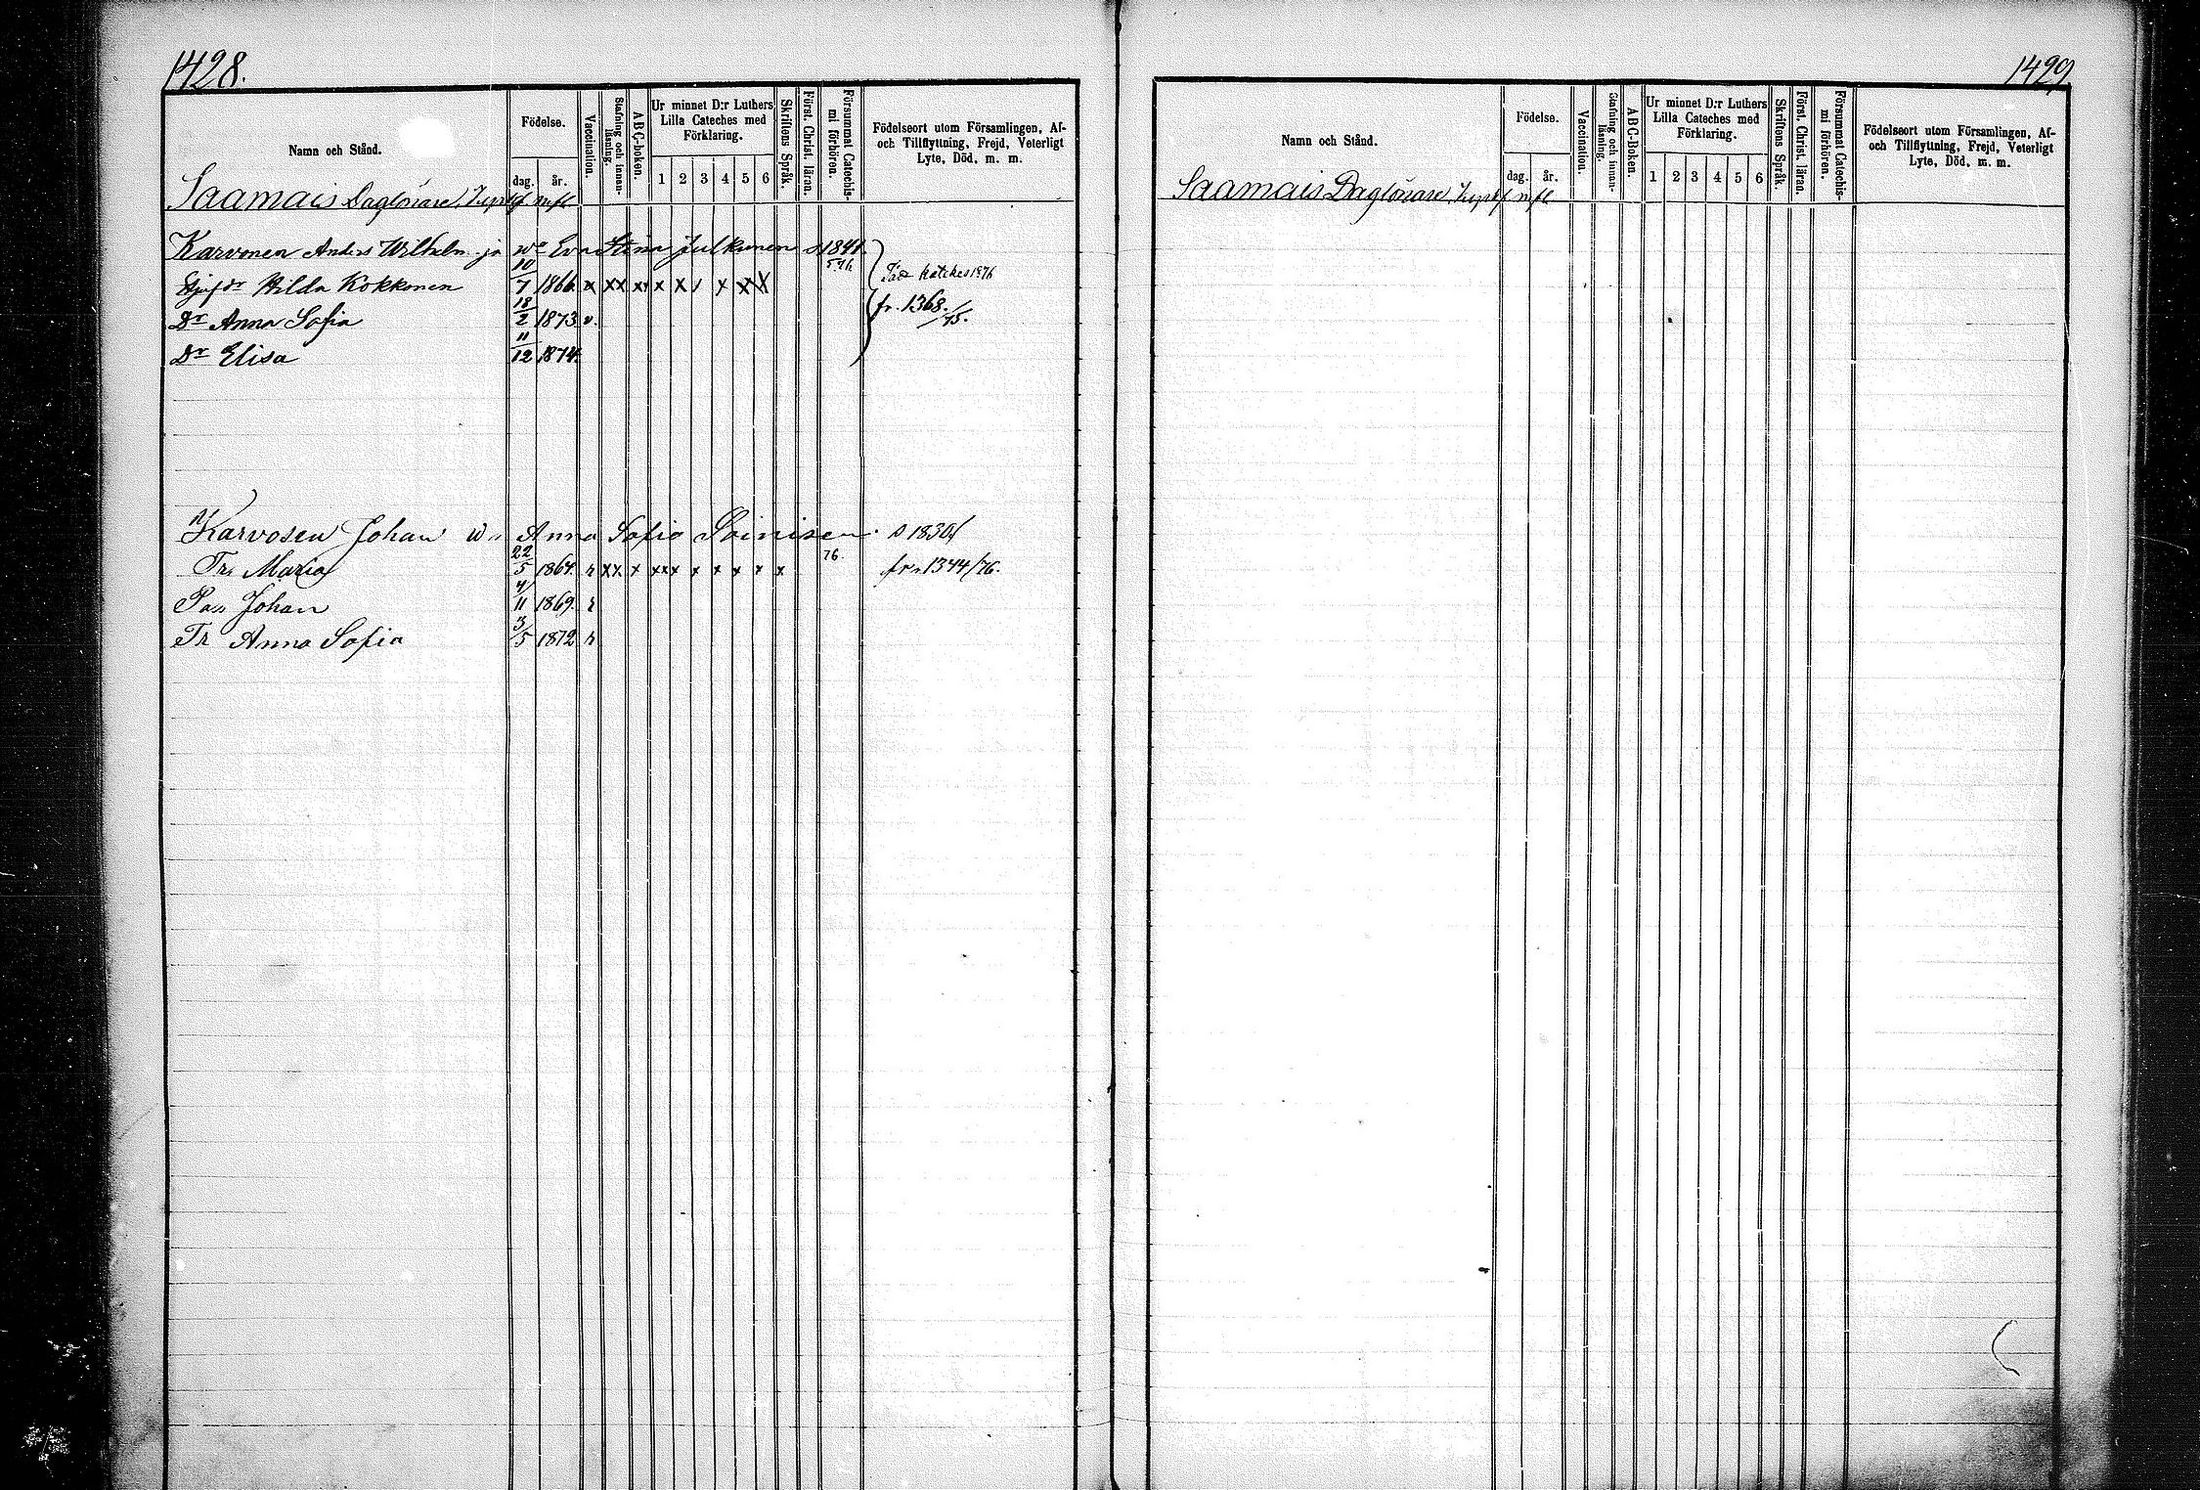 1428.
Namn och Stånd.
Födelse.
dag. år.
Vaccination.
Stafning och innanläsning.
ABC-boken.
Ur minnet D:r Luthers
Lilla Cateches med
Förklaring.
1 2 3 4 5 6
Skriftens Språk.
Först. Christ. läran.
Försummat Catechismi förhören.
Födelseort utom Församlingen, Af-
och Tillflyttning, Frejd, Veterligt
Lyte, Död, m. m.
Saamais Daglönare,
Karvonen Anders Wilhelm ja wo Eva Stina Julkunen s 1841.
Hilda Kokkonen 10/7 1866 x xx x x x x x
Dr Anna Sofia 18/2 1873 v. fr. 1368./75.
Dr Elisa 11/12 1874.
Karvosen Johan Wn Anna Sofia Soinisen s 1830
Tr. Maria 22/5 1864. r xx x xxx x x x x x 76. fr. 1344/76.
Johan 4/11 1869. r
Tr Anna Sofia 3/5 1872 r
1429
Namn och Stånd.
Födelse.
dag. år.
Vaccination.
Stafning och innanläsning.
ABC-Boken.
Ur minnet D:r Luthers
Lilla Cateches med
Förklaring.
1 2 3 4 5 6
Skriftens Språk.
Först. Christ. läran.
Försummat Catechismi förhören.
Födelseort utom Församlingen, Af-
och Tillflyttning, Frejd, Veterligt
Lyte, Död, m. m.
Saamais Daglönare,